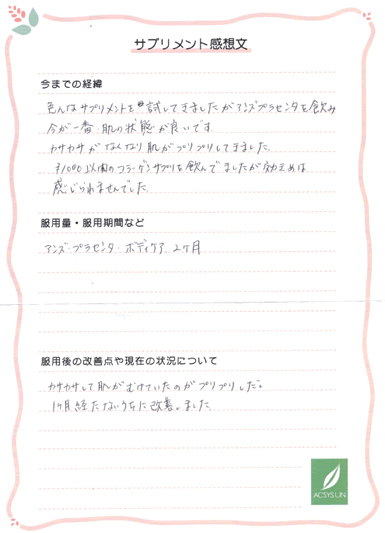 サプリメント感想文
今までの経緯
色んなサプリメントを試してきましたがアンズプラセンタを飲み
今が一番肌の状態が良いです。
カサカサがなくなり肌がプリプリしてきました。
以前のコラーゲンサプリを飲んでましたが効果は
感じられませんでした。
服用量・服用期間など
アンズ・プラセンタ・ボディケア 2ヶ月
服用後の改善点や現在の状況について
カサカサして肌がむけていたのがプリプリした。
1ヶ月経たないうちに改善しました。
ACSYSUN